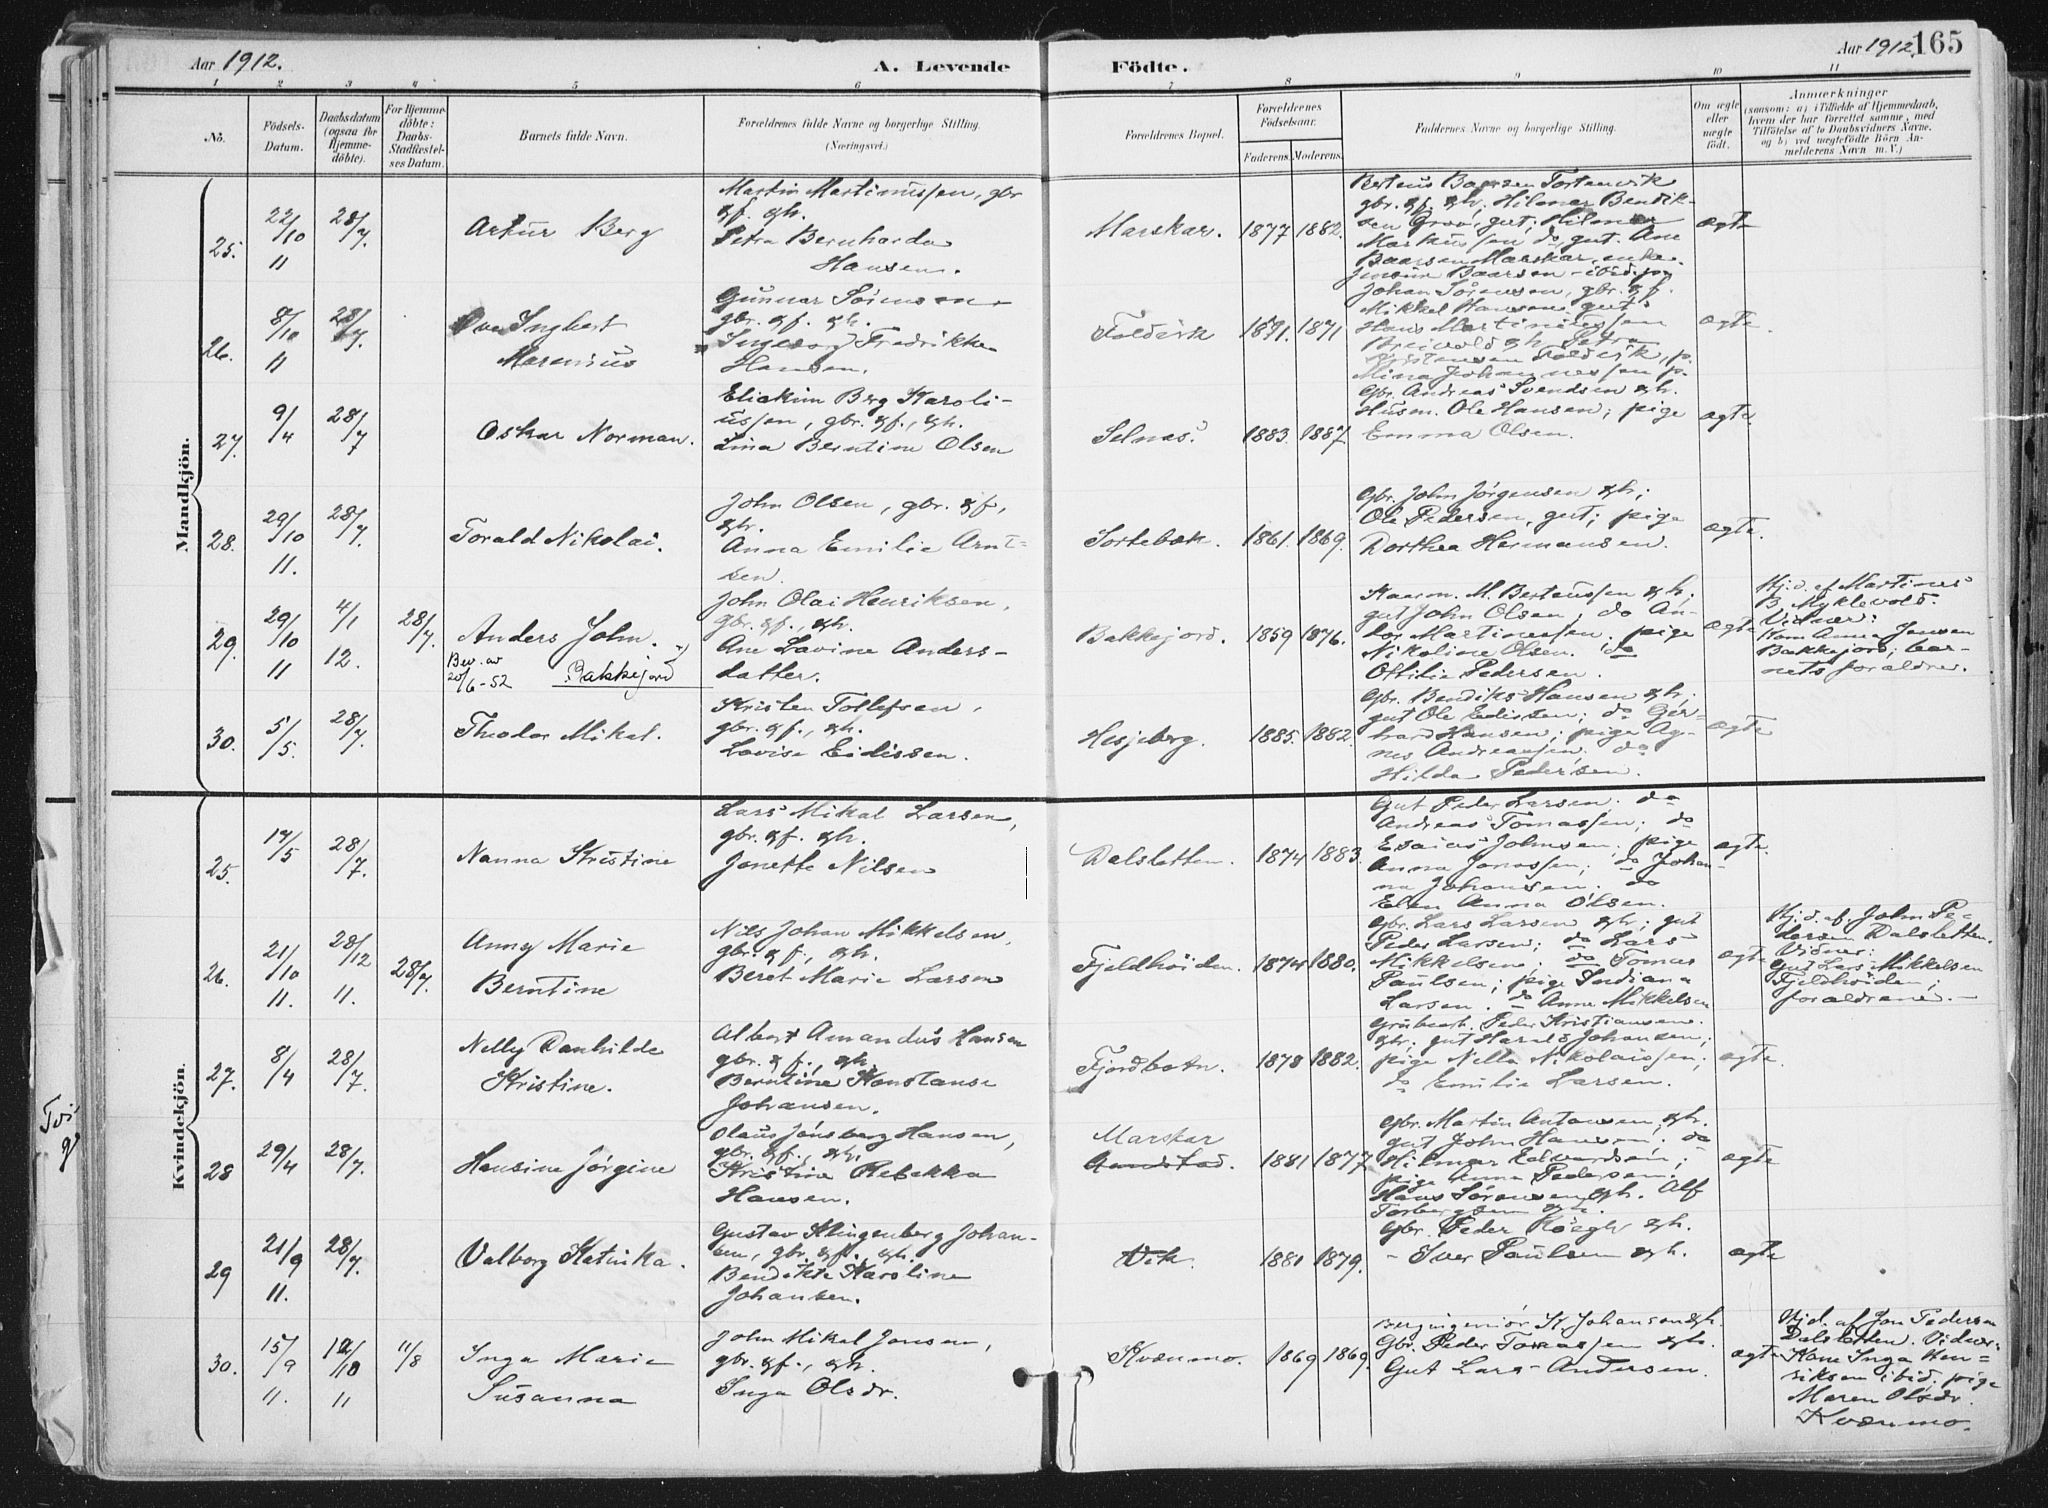 Aar 1912. A. Levende Födte. Aar 1912. 165
1 2 3 4 5 6 7 8 9 10 11
No. Födsels-Datum. Daabsdatum (ogsaa for Hjemmedöbte). For Hjemmedöbte: Daabs-Stadfæstelses Datum. Barnets fulde Navn. Forældrenes fulde Navne og borgerlige Stilling. (Næringsvei.) Forældrenes Bopæl. Forældrenes Födselsaar. Faderens. Moderens. Faddernes Navne og borgerlige Stilling. Om ægte eller uægte födt. Anmærkninger (saasom: a) i Tilfælde af Hjemmedaab, hvem der har forrettet samme, med Tilföielse af to Daabsvidners Navne, og b) ved uægtefödte Börn Anmelderens Navn m. V.)
Mandkjön.
25. 22/10 11 28/7. Artur Berg
Martin Martinussen, gbr
gf. gh.
Petra Bernharda
Hansen.
Marskar. 1877 1882.
Berteus Baarsen Tortenvik
gbr. gf. gh; Hilmar Bendik-
sen Grov, gut; Hilmar
Markussen do, gut. Ane
Baarsen Marskar, enke.
Jensine Baarsen - ibid. pg
ægte
26. 8/10 11 28/7. Ingbert
Marenius
Gunnar Sörensen
gbr. gf. gh.
Ingeborg Fredrikke
Hansen.
Foldvik 1891. 1871
Johan Sörensen, gbr. gf.
Mikkel Hansen gut;
Hans Martinussen
Breivold gh. Petra
Kristensen Foldvik, p.
Mina Johannessen p.
ægte.
27. 9/4 28/7 Oskar Norman.
Eliakim Berg Karoli-
ussen, gbr. gf., gh.
Lina Berntine Olsen
Selnæs. 1883. 1887.
Gbr. Andreas Svendsen gh.
Husm. Ole Hansen; pige
Emma Olsen.
ægte.
28. 29/10 11. 28/7. Torald Nikolai.
John Olsen, gbr. gf,
gh.
Anna Emilie Arnt-
sen.
Sortebæk. 1861. 1869.
Gbr. John Jörgensen gh;
Ole Pedersen, gut; pige
Dorthea Hermansen.
ægte.
29. 29/10 11 4/1 12. 28/7. Anders John.
Bev. av
20/6-52 Bakkejord
John Olai Henriksen,
gbr. gf., gh.
Ane Lovine Anders-
datter.
Bakkejord. 1859 1876.
Kaaron. M. Berteussen gh;
gut John Olsen, do An-
dor Martinussen. pige
Nikoline Olsen. do
Ottilie Pedersen.
ægte
Hj. d. af Martines
B. Myklevold.
Vidner:
Kone Anna Jensen
Bakkejord; bar-
nets forældre.
30. 5/5. 28/7. Theodor Mikal.
Kristen Tollefsen,
gbr. gf., gh.
Lovise Eidissen.
Hesjeberg. 1885. 1882.
Gbr. Bendiks Hansen gh;
gut Ole Edissen; do Ger-
hard Hansen; pige Ag-
nes Andreassen. do
Hilda Pedersen.
ægte
Kvindekjön.
25. 17/5 28/7. Nanna Kristine
Lars Mikal Larsen,
gbr. gf. gh.
Jonette Nilsen
Dalsletten. 1874 1883.
Gut Peder Larsen; do
Andreas Tomassen; do
Esaias Johnsen; pige
Anna Jonassen; do Johan-
na Johansen; do
Elen Anna Olsen.
ægte.
26. 21/10 11. 28/12 11. 28/7. Anny Marie
Berntine
Nils Johan Mikkelsen,
gbr. gf., gh.
Beret Marie Larsen
Fjeldhöiden. 1874 1880.
Gbr. Lars Larsen gh; gut
Peder Larsen; do Lars
Mikkelsen; do Tomas
Paulsen; pige Indiana
Larsen. do Anne Mikkelsen
ægte
Hj. d. af. John Pe-
dersen Dalsletten.
Vidner:
Gut Lars Mikkelsen
Fjeldhöiden;
forældrene. -
27. 8/4 28/7. Nelly Danhilde
Kristine.
Albert Amandus Hansen
gbr. gf, gh.
Berntine Konstanse
Johansen.
Fjordbotn. 1878 1882.
Grubearb. Peder Kristiansen.
gh; gut Harald Johansen;
pige Nella Nikolaissen;
do Emilie Larsen.
ægte.
28 29/4 28/7. Hansine Jörgine
Olaus Jönsberg Hansen,
gbr. gf., gh.
Kristine Rebekka
Hansen.
Marskar
1881 1877
Gbr. Martin Antonsen, gh.
gut John Hansen. do
Hilmar Edvardsen;
pige Anna Pedersen.
Hans Sörensen gh. Alf
Torbergsen gh.
ægte
29 21/9 11. 28/7. Valborg Katinka.
Gustav Klingenberg Johan-
sen, gbr. gf. gh.
Bendikte Karoline
Johansen.
Vik. 1881 1879.
Gbr. Peder Röegh gh.
- Iver Paulsen gh.
ægte
30. 15/9 11. 12/10 11 11/8 Inga Marie
Susanna
John Mikal Jonsen,
gbr. gf., gh.
Inga Olsdr.
Kvænmo. 1869 1869.
Bergingeniör K. Johansen gh.
Gbr. Peder Tomassen gh.
Gut Lars Andersen.
ægte
Hjd. af Jon Pedersen
Dalsletten. Vidner:
Kone Inga Hen-
riksen ibid. pige
Maren Olsdr.
Kvænmo.